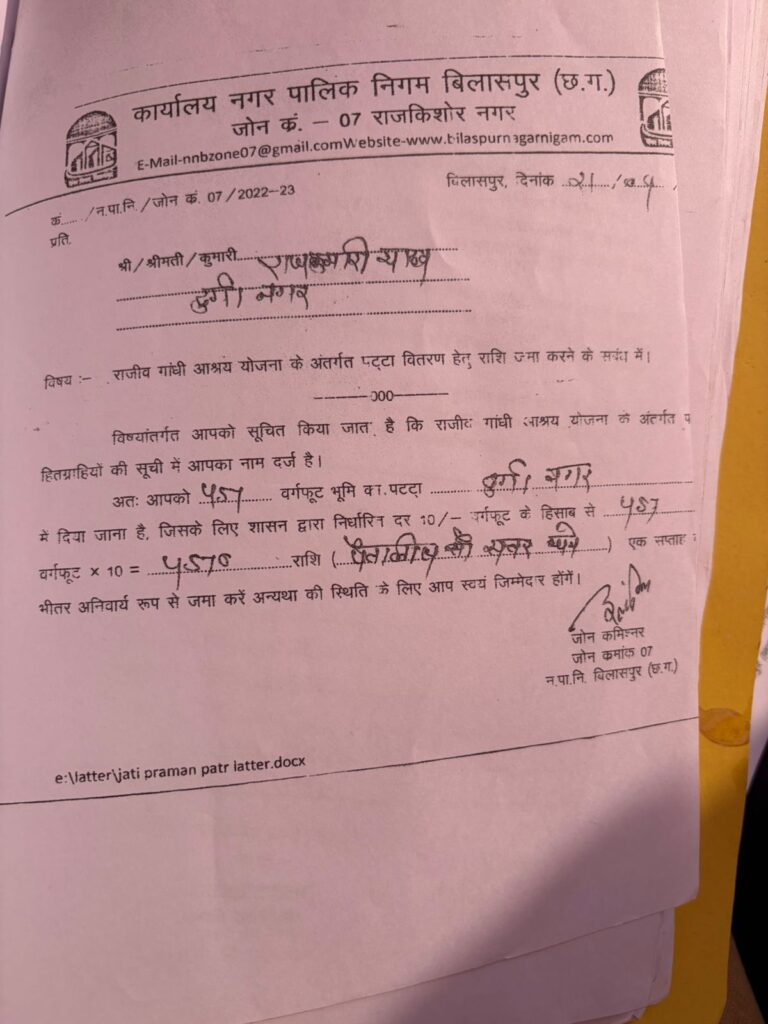 कार्यालय नगर पालिक निगम बिलासपुर (छ.ग.)
जोन कं. – 07 राजकिशोर नगर
E-Mail-nnbzone07@gmail.comWebsite-www.bilaspurnagarnigam.com
कं...... /न.पा.नि./जोन कं. 07/2022-23
बिलासपुर, दिनांक ..21..../
प्रति,
श्री/श्रीमती/कुमारी.... राजकुमारी यादव
दुर्गा नगर
विषय :- राजीव गांधी आश्रय योजना के अंतर्गत पट्टा वितरण हेतु राशि जमा करने के संबंध में।
------000------
विषयांतर्गत आपको सूचित किया जाता है कि राजीव गांधी आश्रय योजना के अंतर्गत प
हितग्राहियों की सूची में आपका नाम दर्ज है।
अतः आपको ..457...... वर्गफूट भूमि का पटटा ........ दुर्गा नगर
में दिया जाना है, जिसके लिए शासन द्वारा निर्धारित दर 10/- वर्गफूट के हिसाब से ....457
वर्गफूट x 10 = ....4570........राशि ( पैतालीस सौ सत्तर रूपये ) एक सप्ताह
भीतर अनिवार्य रूप से जमा करें अन्यथा की स्थिति के लिए आप स्वयं जिम्मेदार होंगें।
जोन कमिश्नर
जोन कमांक 07
न.पा.नि. बिलासपुर (छ.ग.)
e:\latter\jati praman patr latter.docx